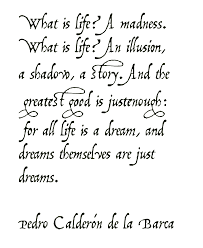 What is life? A madness.
What is life? An illusion,
a shadow, a story. And the
greatest good is justenough:
for all life is a dream, and
dreams themselves are just
dreams.
Pedro Calderón de la Barca